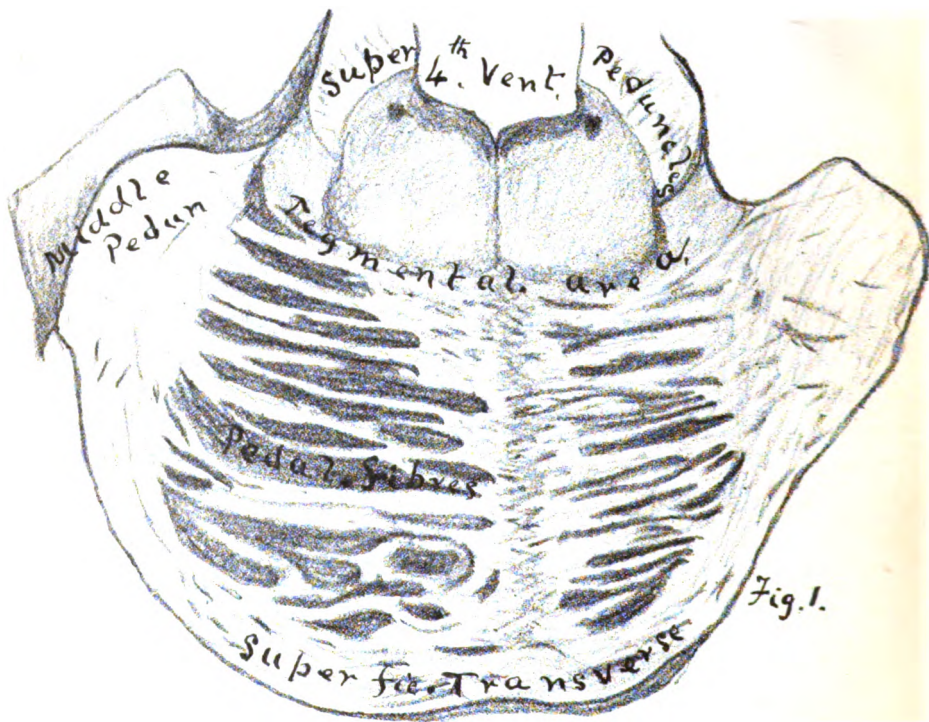 Super
4.th Vent.
Peduncles
Middle
Pedun
Tegmental. area.
Pedal. fibres
Fig. 1.
Superfic. Transverse